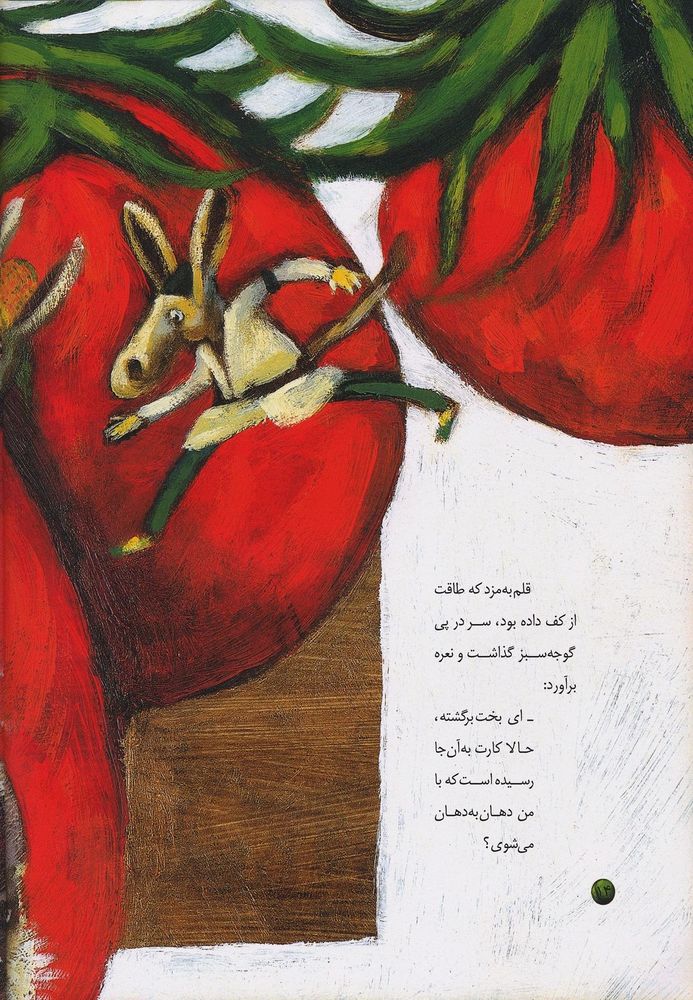 قلم‌به‌مزد که طاقت
از کف داده بود، سر در پی
گوجه‌سبز گذاشت و نعره
برآورد:
ـ ای بخت‌برگشته،
حالا کارت به‌آن‌جا
رسیده است که با
من دهان‌به‌دهان
می‌شوی؟
۱۴